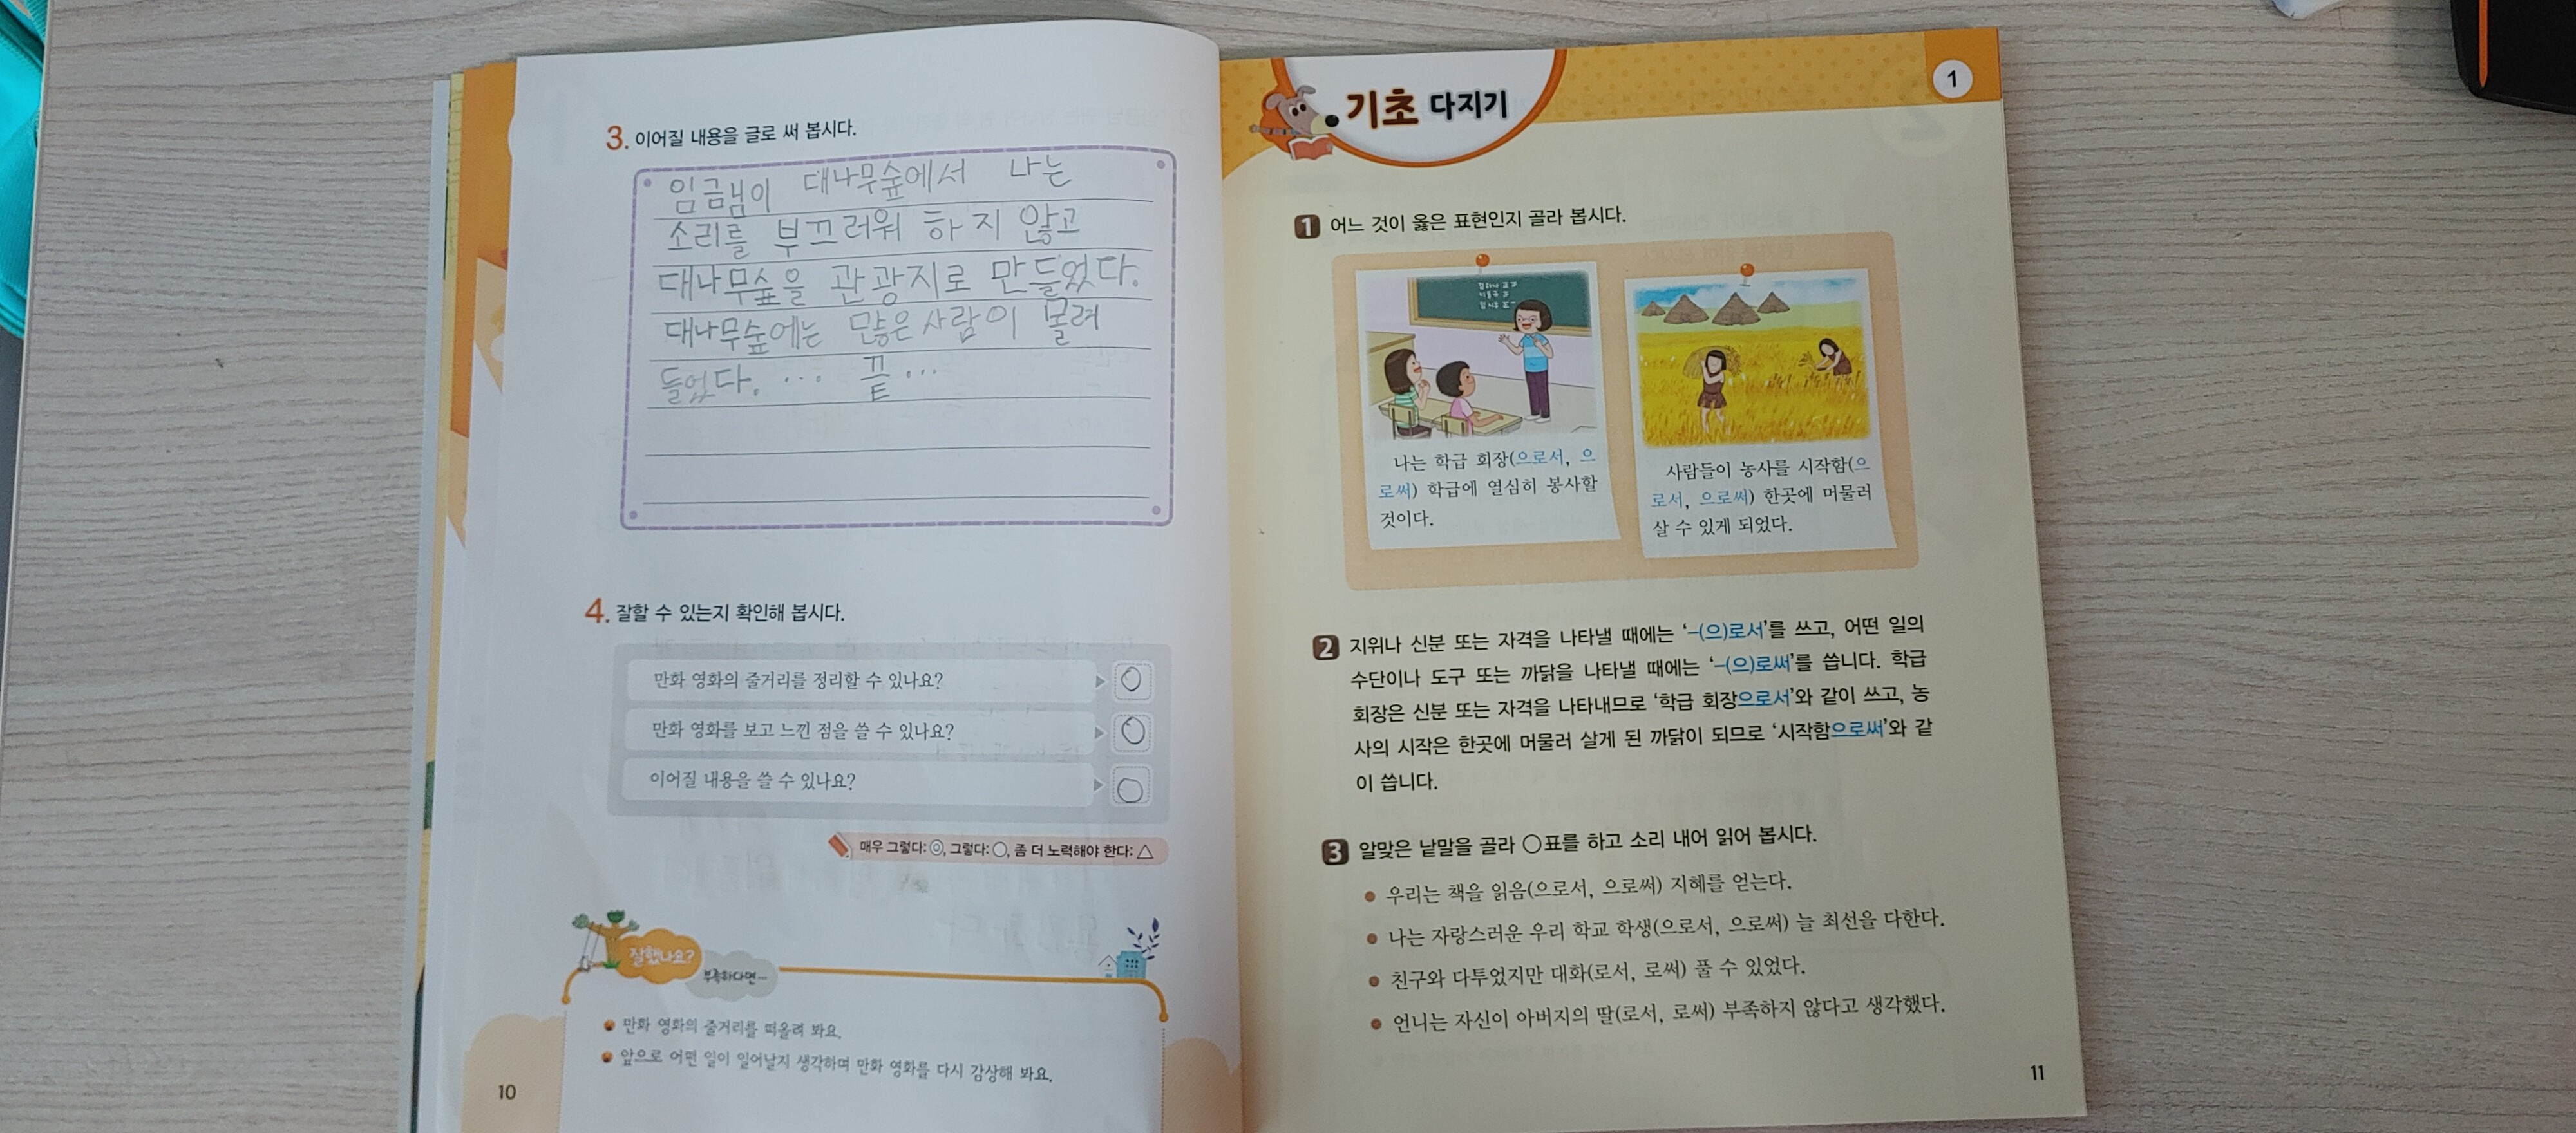 3. 이어질 내용을 글로 써 봅시다.
임금님이 대나무숲에서 나는
소리를 부끄러워 하지 않고
대나무숲을 관광지로 만들었다.
대나무숲에는 많은사람이 몰려
들었다. … 끝…
4. 잘할 수 있는지 확인해 봅시다.
만화 영화의 줄거리를 정리할 수 있나요?
만화 영화를 보고 느낀 점을 쓸 수 있나요?
이어질 내용을 쓸 수 있나요?
매우 그렇다: ◎, 그렇다: ○, 좀 더 노력해야 한다: △
잘했나요?
부족하다면…
만화 영화의 줄거리를 떠올려 봐요.
앞으로 어떤 일이 일어날지 생각하며 만화 영화를 다시 감상해 봐요.
10
기초 다지기
1
1 어느 것이 옳은 표현인지 골라 봅시다.
나는 학급 회장(으로서, 으
로써) 학급에 열심히 봉사할
것이다.
사람들이 농사를 시작함(으
로서, 으로써) 한곳에 머물러
살 수 있게 되었다.
2 지위나 신분 또는 자격을 나타낼 때에는 ‘-(으)로서’를 쓰고, 어떤 일의
수단이나 도구 또는 까닭을 나타낼 때에는 ‘-(으)로써’를 씁니다. 학급
회장은 신분 또는 자격을 나타내므로 ‘학급 회장으로서’와 같이 쓰고, 농
사의 시작은 한곳에 머물러 살게 된 까닭이 되므로 ‘시작함으로써’와 같
이 씁니다.
3 알맞은 낱말을 골라 ○표를 하고 소리 내어 읽어 봅시다.
우리는 책을 읽음(으로서, 으로써) 지혜를 얻는다.
나는 자랑스러운 우리 학교 학생(으로서, 으로써) 늘 최선을 다한다.
친구와 다투었지만 대화(로서, 로써) 풀 수 있었다.
언니는 자신이 아버지의 딸(로서, 로써) 부족하지 않다고 생각했다.
11